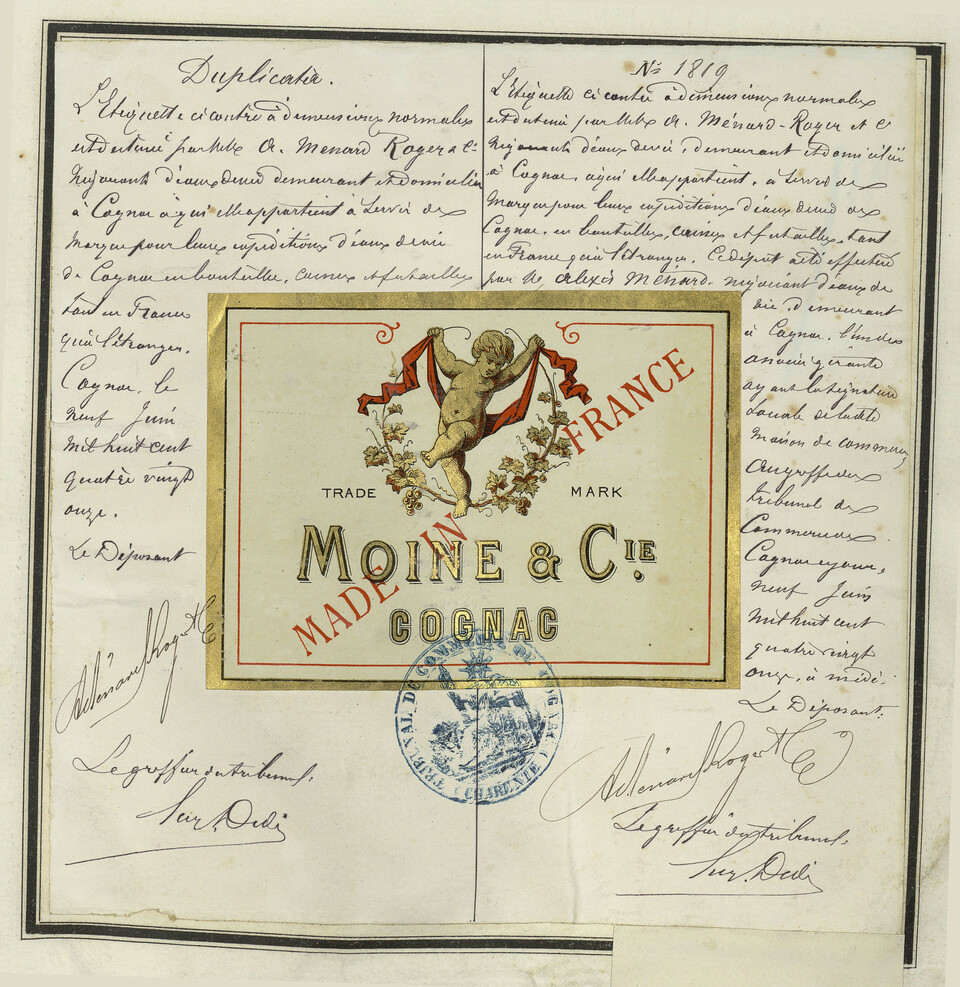 Duplicata.
L'Etiquette ci contre à dimensions normales
est destinée par MM. A. Menard Roger & Cie
négociants d'eaux de vie demeurant et domiciliés
à Cognac à qui elle appartient à servir de
marque pour leurs expéditions d'eaux de vie
de Cognac en bouteilles, caisses et futailles
tant en France
qu'à l'étranger.
Cognac, le
neuf Juin
mil huit cent
quatre vingt
onze.
Le Déposant
A Ménard Roger & Cie
Le greffier du tribunal:
No 1819
L'Etiquette ci contre à dimensions normales
est destinée par MM. A. Ménard-Roger et Cie
négociants d'eaux de vie, demeurant et domiciliés
à Cognac, à qui elle appartient, à servir de
marque pour leurs expéditions d'eaux de vie de
Cognac, en bouteilles, caisses et futailles, tant
en France qu'à l'étranger. Ce dépôt a été effectué
par Mr Alexis Ménard, négociant d'eaux de
vie, demeurant
à Cognac, l'un des
associés gérants
ayant la signature
sociale de ladite
maison de commerce
au greffe du
tribunal de
Commerce de
Cognac ce jour,
neuf Juin
mil huit cent
quatre vingt
onze, à midi.
Le Déposant:
A Ménard Roger & Cie
Le greffier du tribunal:
TRADE MARK
MOINE & CIE.
COGNAC
MADE IN FRANCE
TRIBUNAL DE COMMERCE DE COGNAC
(CHARENTE)